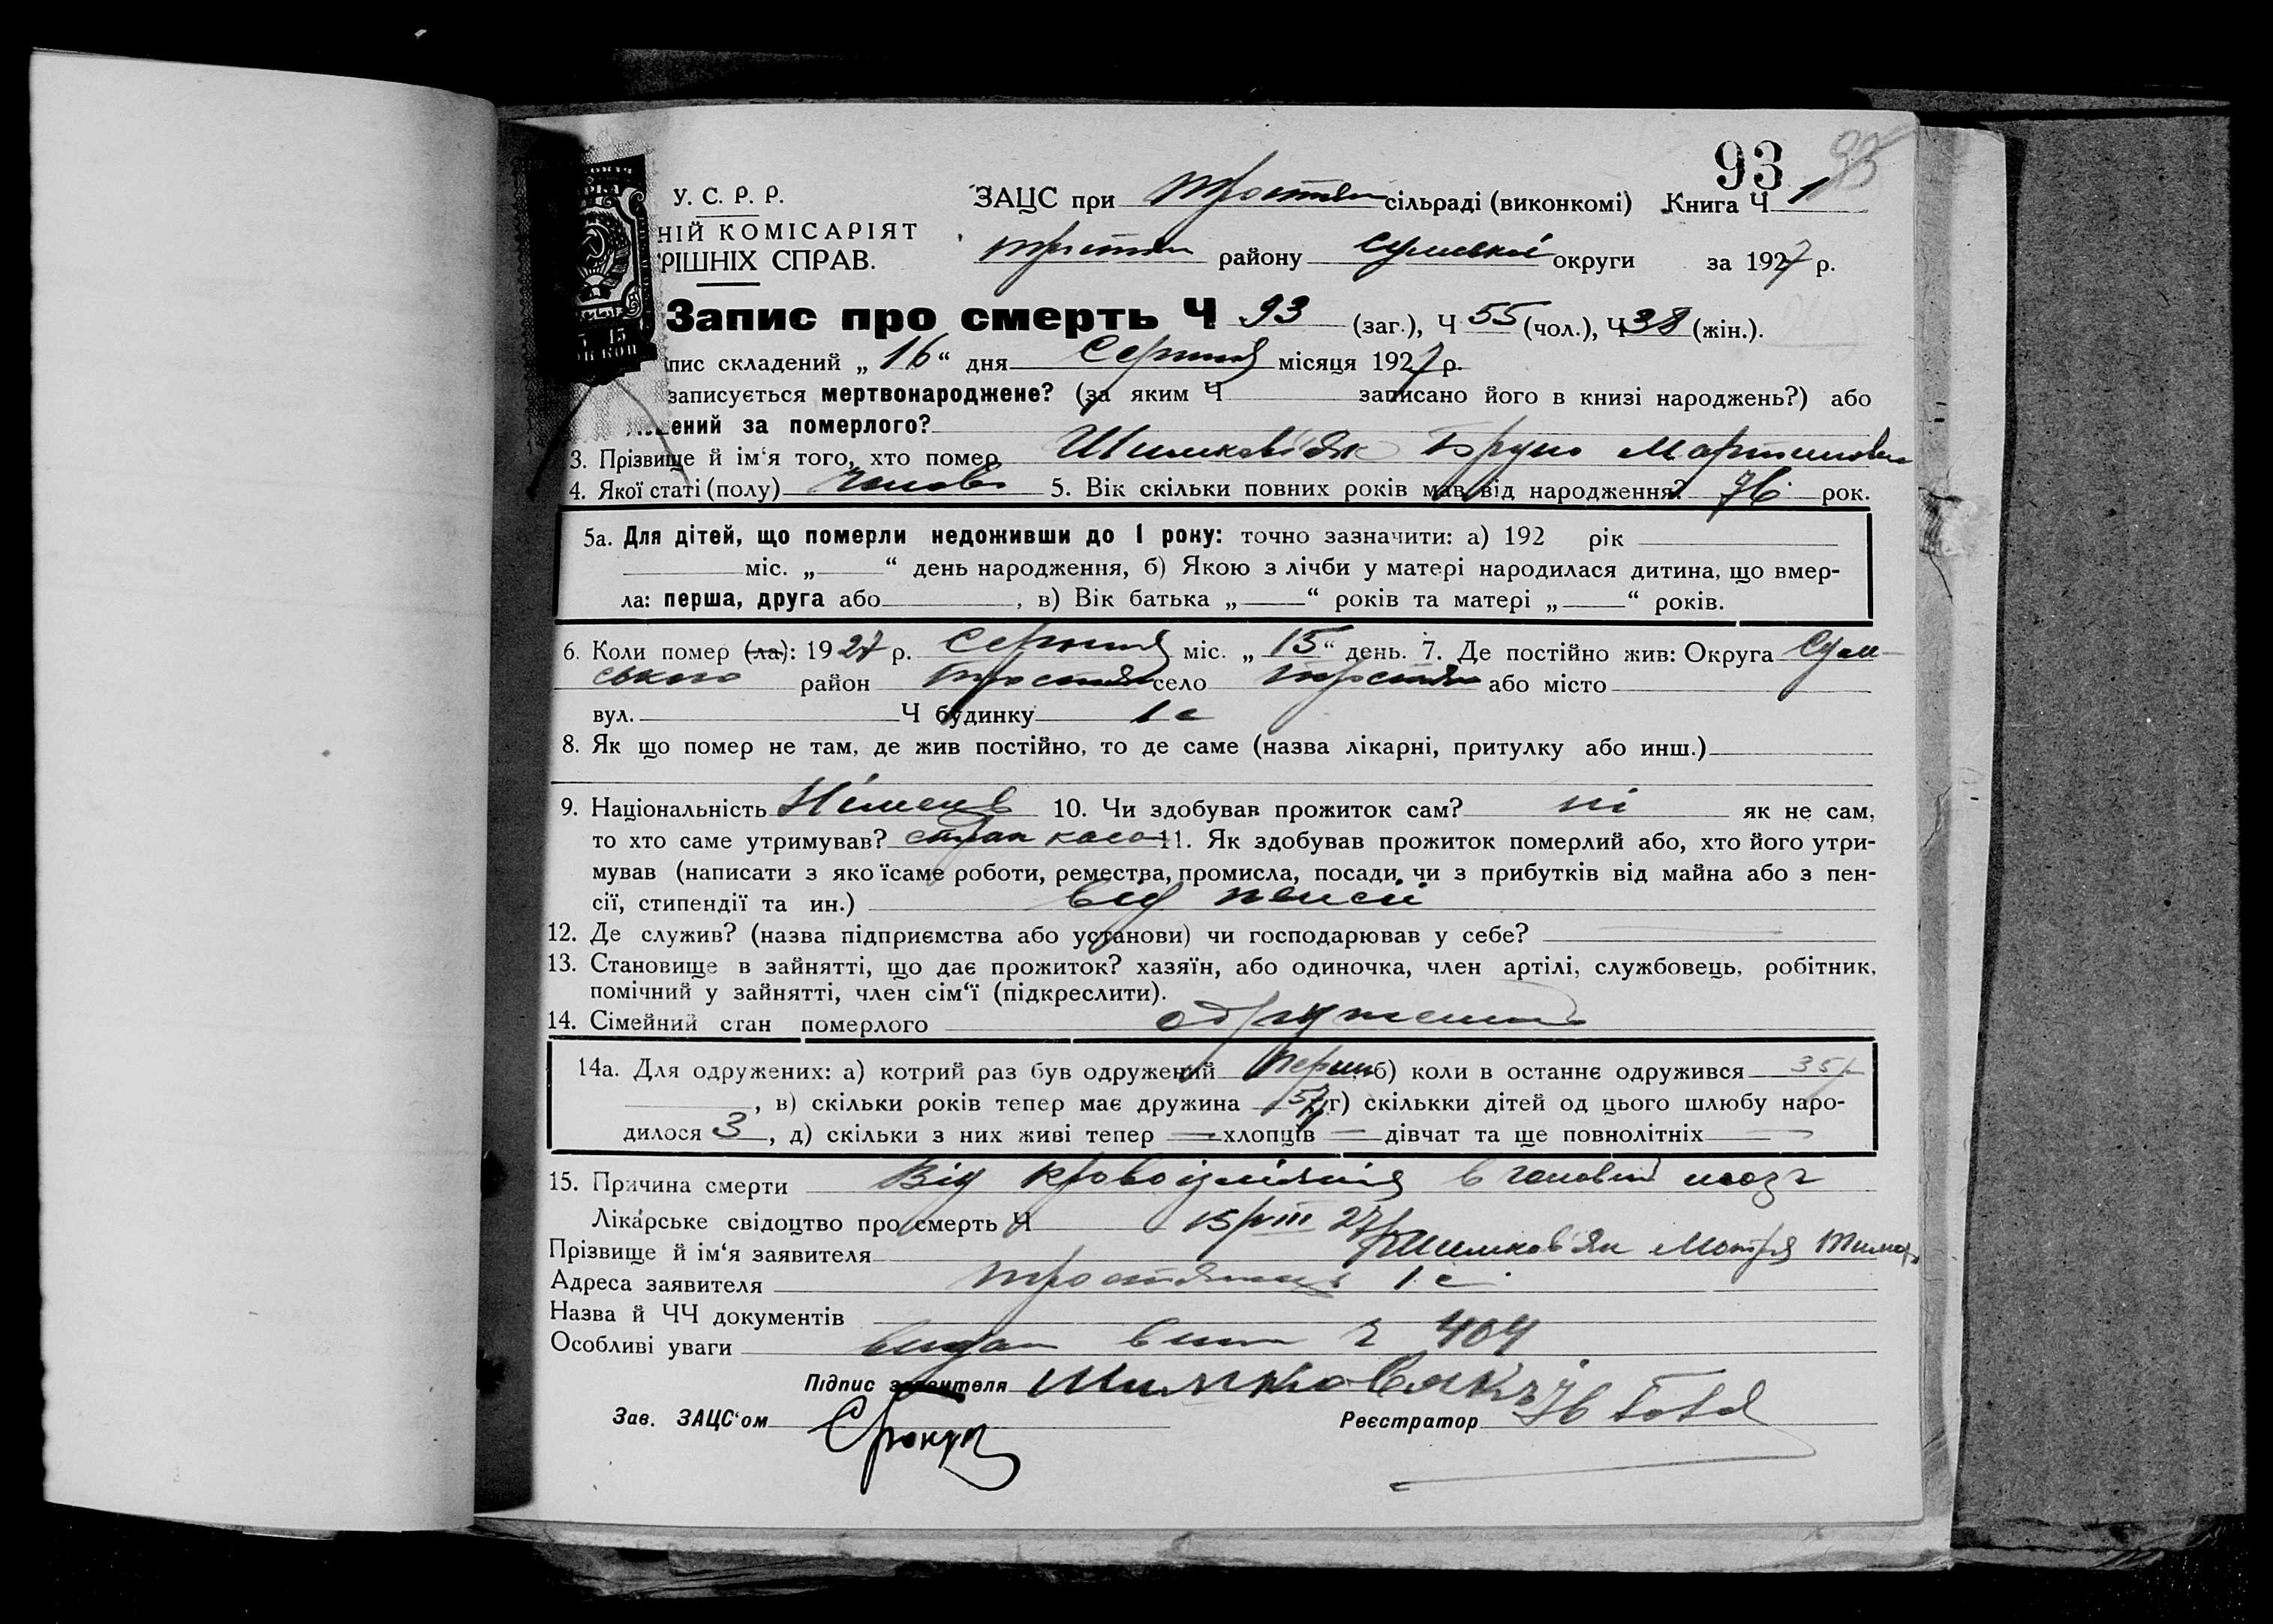 93 93
У. С. Р. Р. ЗАЦС при Тростян сільраді (виконкомі) Книга Ч 1
НІЙ КОМІСАРІЯТ
РІШНІХ СПРАВ. Тростян району Сумської округи за 1927 р.
Запис про смерть Ч 93 (заг.), Ч 55 (чол.), Ч 38 (жін.).
пис складений „ 16 “ дня Серпня місяця 1927 р.
записується мертвонароджене? (за яким Ч записано його в книзі народжень?) або
ений за померлого?
3. Прізвище й ім‘я того, хто помер Шимков'як Бруно Мартинович
4. Якої статі (полу) чолов 5. Вік скільки повних років мав від народження? 76 рок.
5а. Для дітей, що померли недоживши до 1 року: точно зазначити: а) 192 рік
міс. „ “ день народження, б) Якою з лічби у матері народилася дитина, що вмер-
ла: перша, друга або , в) Вік батька „ “ років та матері „ “ років.
6. Коли помер (ла): 1927 р. Серпня міс. „ 15 “ день. 7. Де постійно жив: Округа Сум-
ського район Тростян село Тростян або місто
вул. Ч будинку 1 с
8. Як що помер не там, де жив постійно, то де саме (назва лікарні, притулку або инш.)
9. Національність Німець 10. Чи здобував прожиток сам? ні як не сам,
то хто саме утримував? страх каса 11. Як здобував прожиток померлий або, хто його утри-
мував (написати з якоїсаме роботи, ремества, промисла, посади, чи з прибутків від майна або з пен-
сії, стипендії та ин.) від пенсії
12. Де служив? (назва підприємства або установи) чи господарював у себе?
13. Становище в зайнятті, що дає прожиток? хазяїн, або одиночка, член артілі, службовець, робітник,
помічний у зайнятті, член сім‘ї (підкреслити).
14. Сімейний стан померлого одружений
14а. Для одружених: а) котрий раз був одружений перший б) коли в останнє одружився 35 р
, в) скільки років тепер має дружина 57 г) скількки дітей од цього шлюбу наро-
дилося 3 , д) скільки з них живі тепер — хлопців — дівчат та ще повнолітніх —
15. Причина смерти Від кровоізліяния в головний мозг
Лікарське свідоцтво про смерть Ч 15/VIII 27 р
Прізвище й ім‘я заявителя Шимков'як Мотря Тимоф
Адреса заявителя Тростянець 1 с
Назва й ЧЧ документів
Особливі уваги видан вип ч 404
Підпис заявителя Шимковякъ
Зав. ЗАЦС‘ом Реєстратор